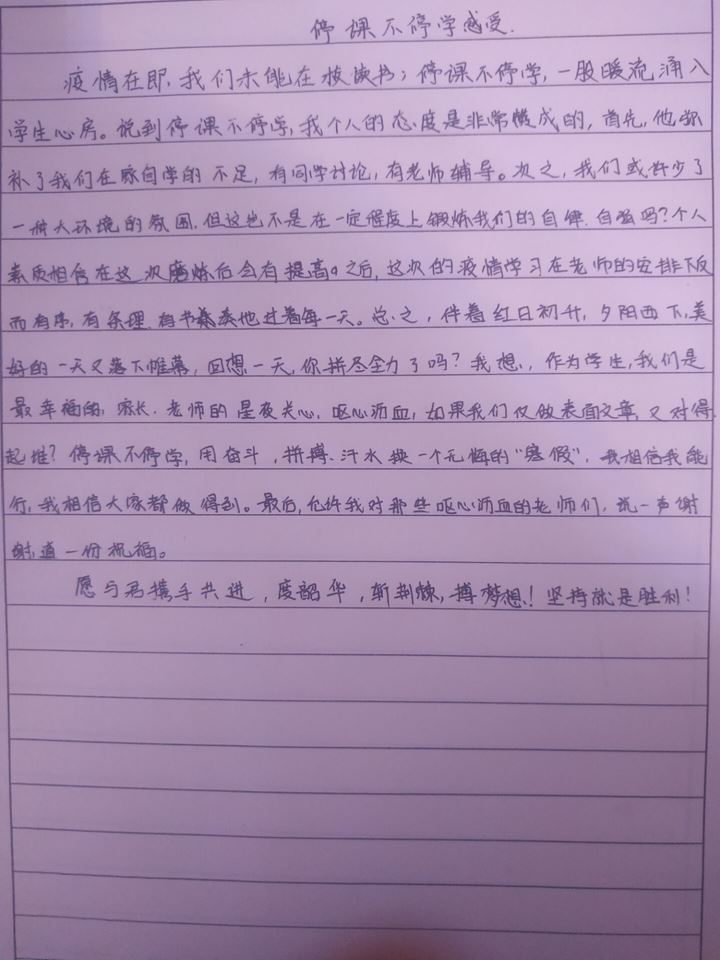 停课不停学感受.
疫情在即,我们未能在校读书;停课不停学,一股暖流涌入
学生心房。说到停课不停学,我个人的态度是非常赞成的,首先,他弥
补了我们在家自学的不足,有同学讨论,有老师辅导。次之,我们或许少了
一种大环境的氛围,但这也不是在一定程度上锻炼我们的自律.自强吗?个人
素质相信在这次磨炼后会有提高。之后,这次的疫情学习在老师的安排下反
而有序,有条理.有节奏地过着每一天。总之,伴着红日初升,夕阳西下,美
好的一天又落下帷幕,回想一天,你拼尽全力了吗?我想,作为学生,我们是
最幸福的.家长.老师的星夜关心,呕心沥血,如果我们仅做表面文章,又对得
起谁?停课不停学,用奋斗,拼搏.汗水换一个无悔的"寒假",我相信我能
行,我相信大家都做得到。最后,允许我对那些呕心沥血的老师们,说一声谢
谢,道一份祝福。
愿与君携手共进,度韶华,斩荆棘,搏梦想!坚持就是胜利!